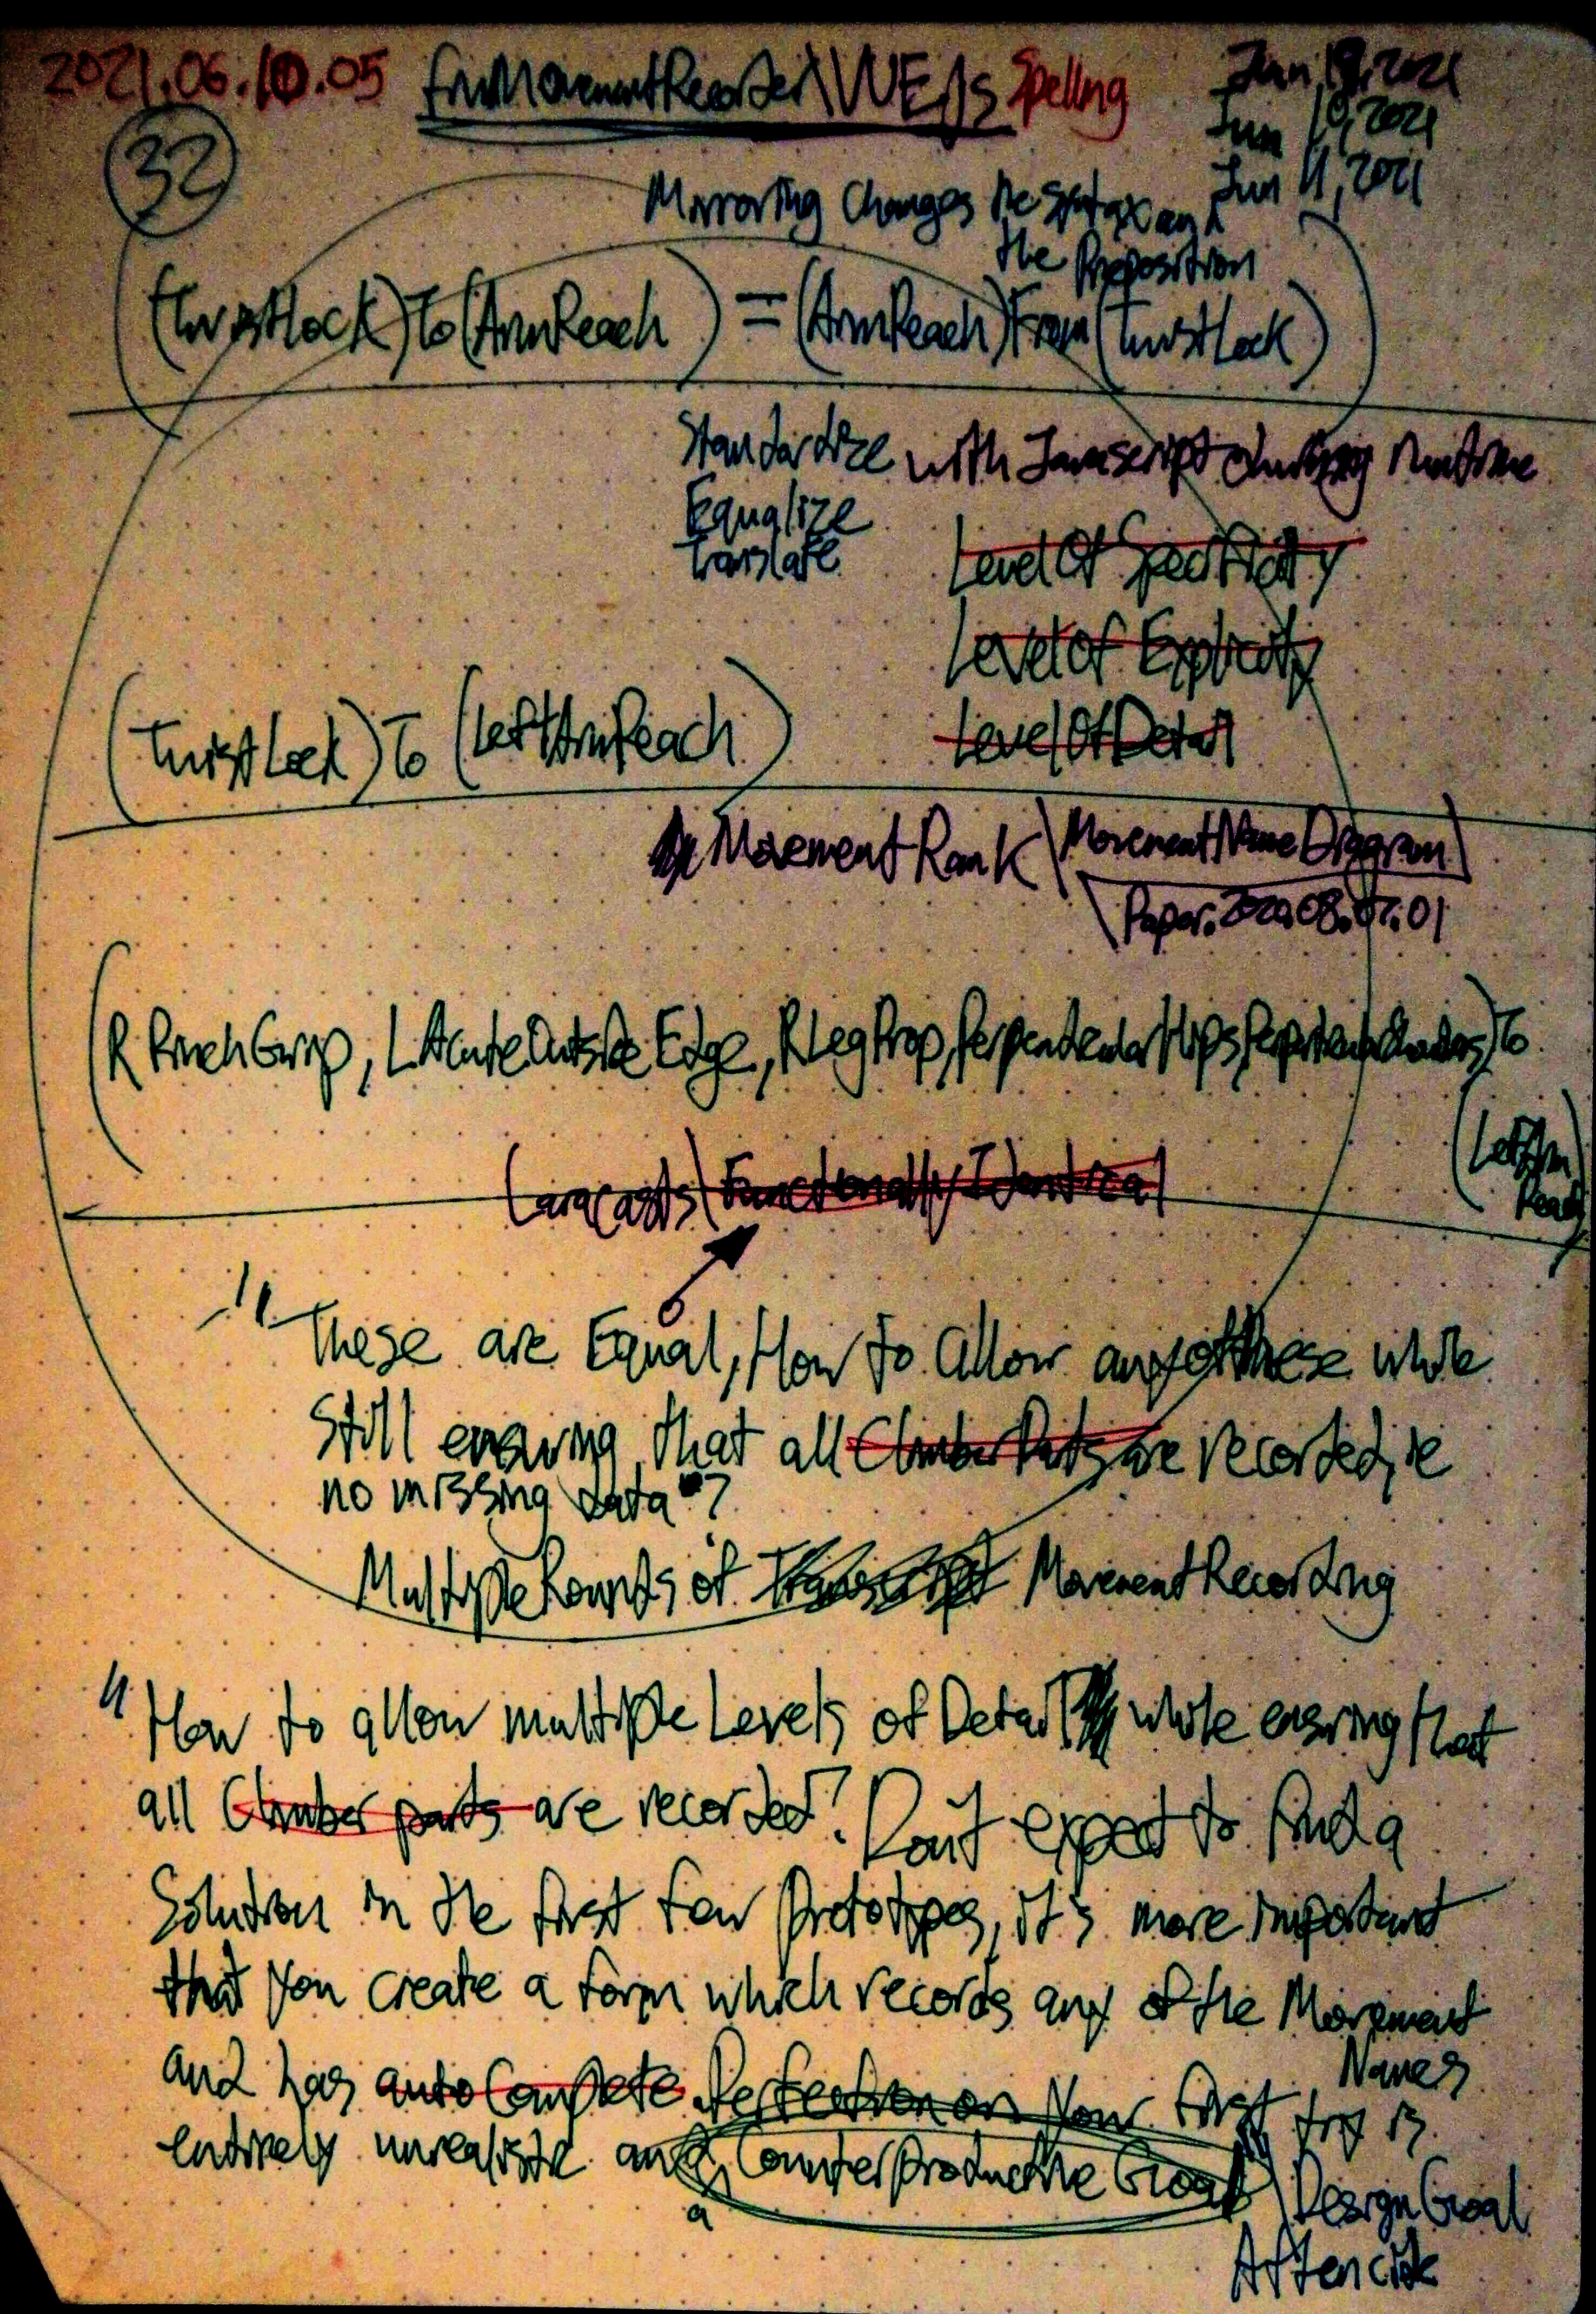 2021.06.10.05 frmMovementRecorder\WEJs Spelling
Jun 10, 2021
Jun 11, 2021
32
Mirroring Changes the Syntax and
the Preposition
(TwistLock)To(ArmReach) = (ArmReach)From(TwistLock)
Standardize with Javascript during runtime
Equalize
Translate
LevelOfSpecificity
LevelOf Explicity
LevelOfDetail
(TwistLock)To(LeftArmReach)
MovementRank\MovementNameDiagram
\Paper.2020.08.07.01
(R PinchGrip, LAcuteOutsideEdge, RLegProp, PerpendicularHips, PerpendicularShoulders)To
(LeftArm
Reach)
Laracasts\FunctionallyIdentical
"These are Equal, How to allow any of these while
Still ensuring that all ClimberParts are recorded, ie
no missing data"?
MultipleRounds of Transcript MovementRecording
"How to allow multiple Levels of Detail while ensuring that
all Climber parts are recorded? Don't expect to find a
Solution in the first few prototypes, it's more important
that you create a form which records any of the Movement
Names
and has autoComplete. Perfection on Your first try is
entirely unrealistic and a CounterProductive Goal \DesignGoal